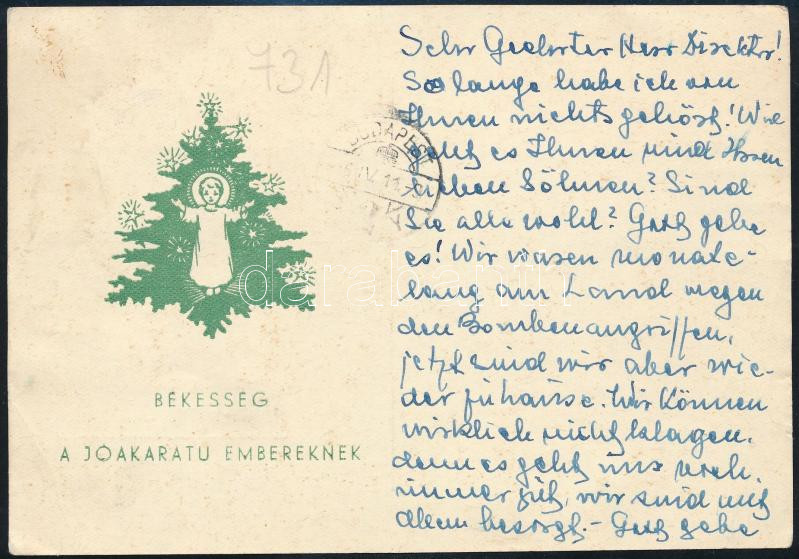 731
BUDAPEST
BÉKESSÉG
A JÓAKARATÚ EMBEREKNEK
Sehr Geehrter Herr Direktor!
So lange habe ich von
Ihnen nichts gehört! Wie
geht es Ihnen und Ihren
lieben Söhnen? Sind
Sie alle wohl? Gott gebe
es! Wir waren monate-
lang am Land wegen
den Bombenangriffen,
jetzt sind wir aber wie-
der zuhause. Wir können
wirklich nicht klagen,
denn es geht uns noch
immer gut, wir sind mit
allem besorgt. - Gott gebe
darabanth